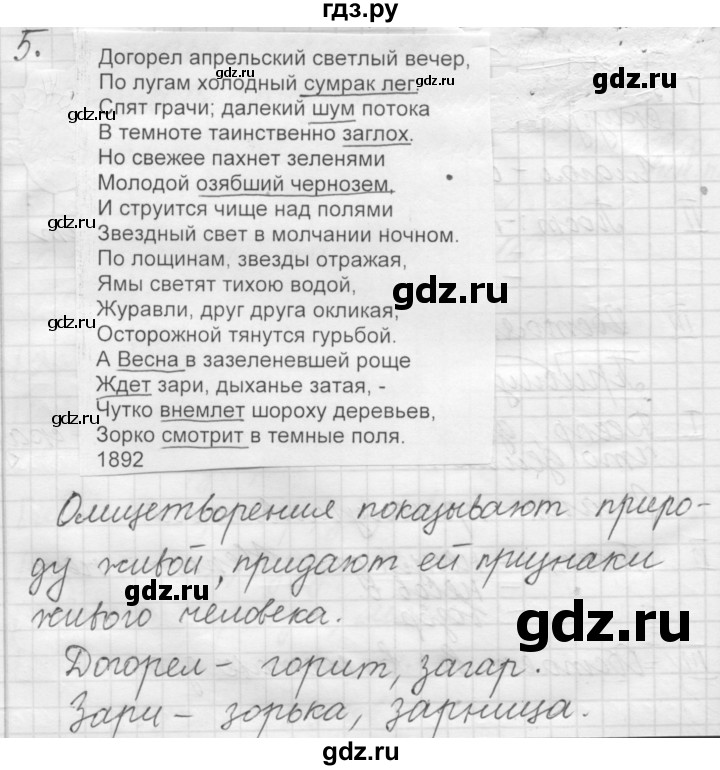 гдз.ру
5.
Догорел апрельский светлый вечер,
gdz.ru gdz.ru
По лугам холодный сумрак лег
Спят грачи; далекий шум потока
gdz.ru
В темноте таинственно заглох.
Но свежее пахнет зеленями
Молодой озябший чернозем,
И струится чище над полями
Звездный свет в молчании ночном.
По лощинам, звезды отражая,
Ямы светят тихою водой,
gdz.ru
Журавли, друг друга окликая,
gdz.ru
Осторожной тянутся гурьбой.
А Весна в зазеленевшей роще
Ждет зари, дыханье затая, -
Чутко внемлет шороху деревьев,
gdz.ru gdz.ru
Зорко смотрит в темные поля.
1892
Олицетворения показывают приро-
ду живой, придают ей признаки
gdz.ru
живого человека.
gdz.ru
Догорел – горит, загар.
gdz.ru
Зари – зорька, зарница.
gdz.ru